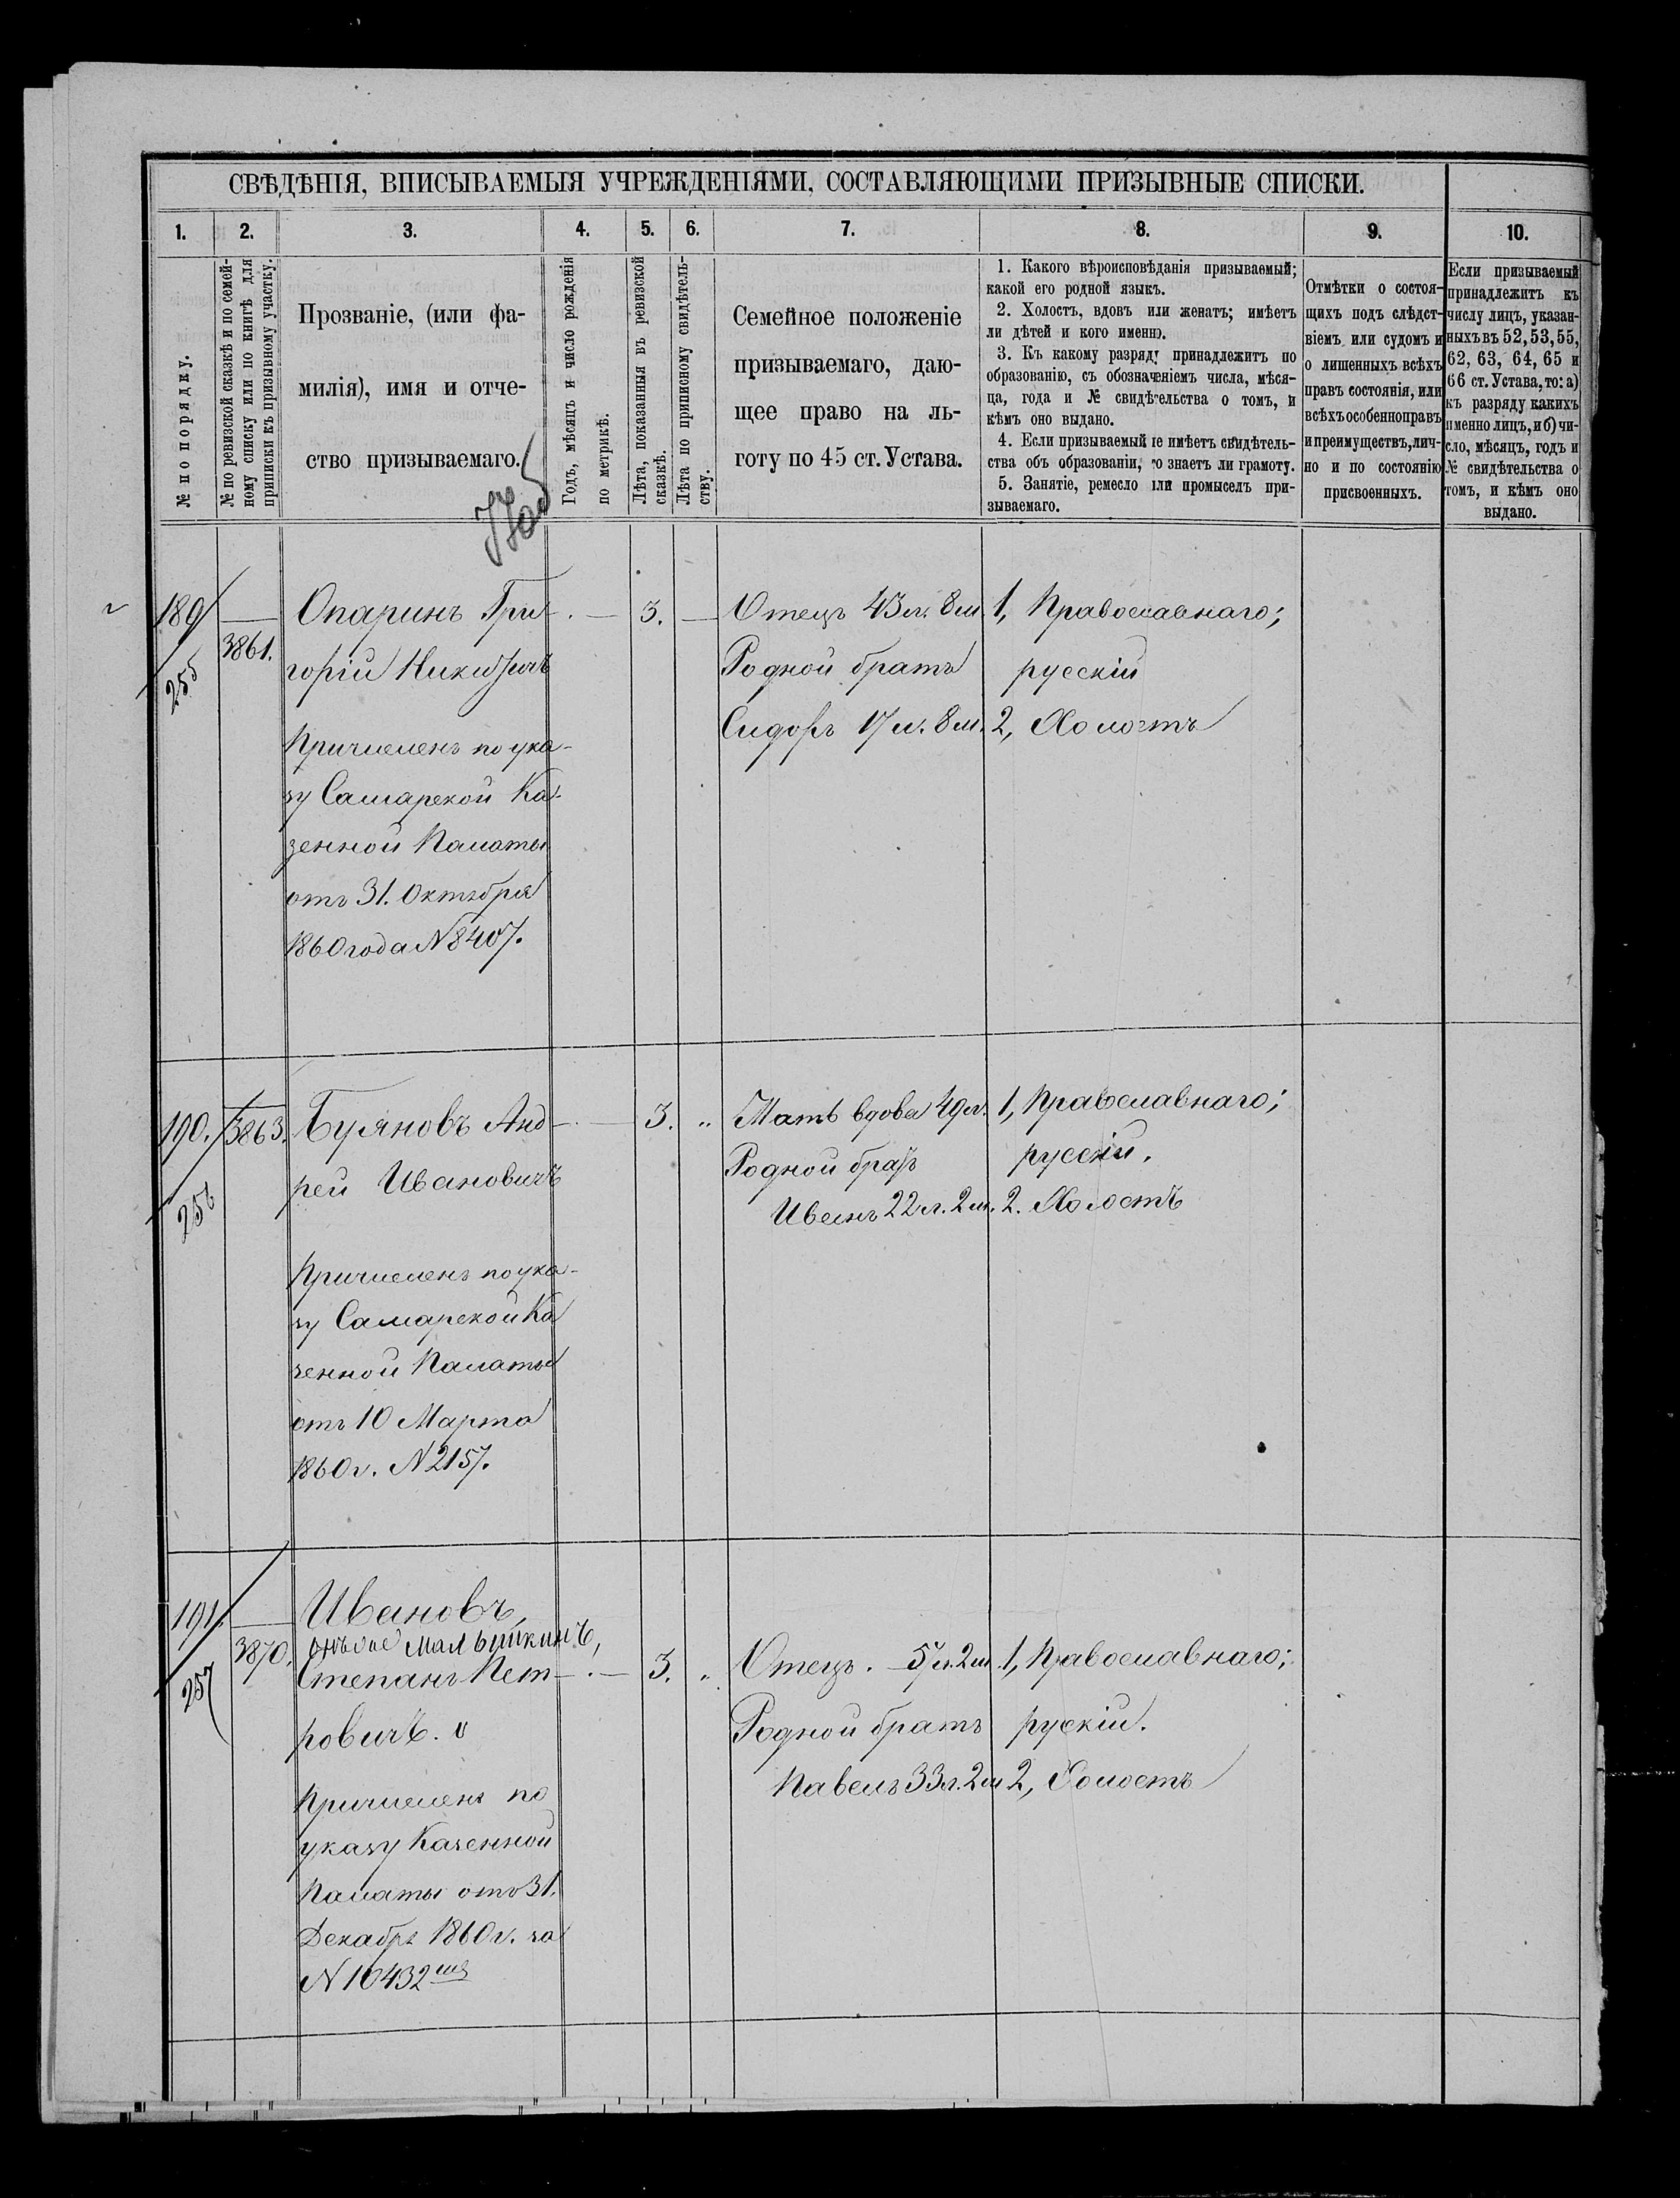 СВѢДѢНІЯ, ВПИСЫВАЕМЫЯ УЧРЕЖДЕНІЯМИ, СОСТАВЛЯЮЩИМИ ПРИЗЫВНЫЕ СПИСКИ.
1. 2. 3. 4. 5. 6. 7. 8. 9. 10.
№ по порядку.
№ по ревизской сказкѣ и по семей-
ному списку или по книгѣ для
приписки къ призывному участку.
Прозваніе, (или фа-
милія), имя и отче-
ство призываемаго.
Годъ, мѣсяцъ и число рожденія
по метрикѣ.
Лѣта, показанныя въ ревизской
сказкѣ.
Лѣта по приписному свидѣтель-
ству.
Семейное положеніе
призываемаго, даю-
щее право на ль-
готу по 45 ст. Устава.
1. Какого вѣроисповѣданія призываемый;
какой его родной языкъ.
2. Холостъ, вдовъ или женатъ; имѣетъ
ли дѣтей и кого именно.
3. Къ какому разряду принадлежитъ по
образованію, съ обозначеніемъ числа, мѣся-
ца, года и № свидѣтельства о томъ, и
кѣмъ оно выдано.
4. Если призываемый не имѣетъ свидѣтель-
ства объ образованіи, то знаетъ ли грамоту.
5. Занятіе, ремесло или промыселъ при-
зываемаго.
Отмѣтки о состоя-
щихъ подъ слѣдст-
віемъ или судомъ и
о лишенныхъ всѣхъ
правъ состоянія, или
всѣхъ особенно правъ
и преимуществъ, лич-
но и по состоянію
присвоенныхъ.
Если призываемый
принадлежитъ къ
числу лицъ, указан-
ныхъ въ 52, 53, 55,
62, 63, 64, 65 и
66 ст. Устава, то: а)
къ разряду какихъ
именно лицъ, и б) чи-
сло, мѣсяцъ, годъ и
№ свидѣтельства о
томъ, и кѣмъ оно
выдано.
189
255
3861.
Опаринъ Гри-
горій Никитичъ
Причисленъ по ука-
зу Самарской Ка-
зенной Палаты
отъ 31. Октября
1860 года N 8407.
3.
Отецъ 43 л. 8 м.
Родной братъ
Сидоръ 17 л. 8 м.
1, Православнаго;
русскій
2, Холостъ
190.
256
3863.
Буяновъ Анд-
рей Ивановичъ
Причисленъ по ука-
зу Самарской Ка
зенной Палаты
отъ 10 Марта
1860 г. N 2157.
3. „
Мать вдова 49 л.
Родной братъ
Иванъ 22 л. 2 м.
1, Православнаго;
русскій.
2. Холостъ
191.
257
3870.
Ивановъ,
онъ же Малышкинъ,
Степанъ Пет-
ровичъ.
Причисленъ по
указу Казенной
Палаты отъ 31.
Декабря 1860 г. за
N 10432
3. „
Отецъ. 57 л. 2 м.
Родной братъ
Павелъ 33 л. 2 м
1, Православнаго;
рускій.
2, Холостъ